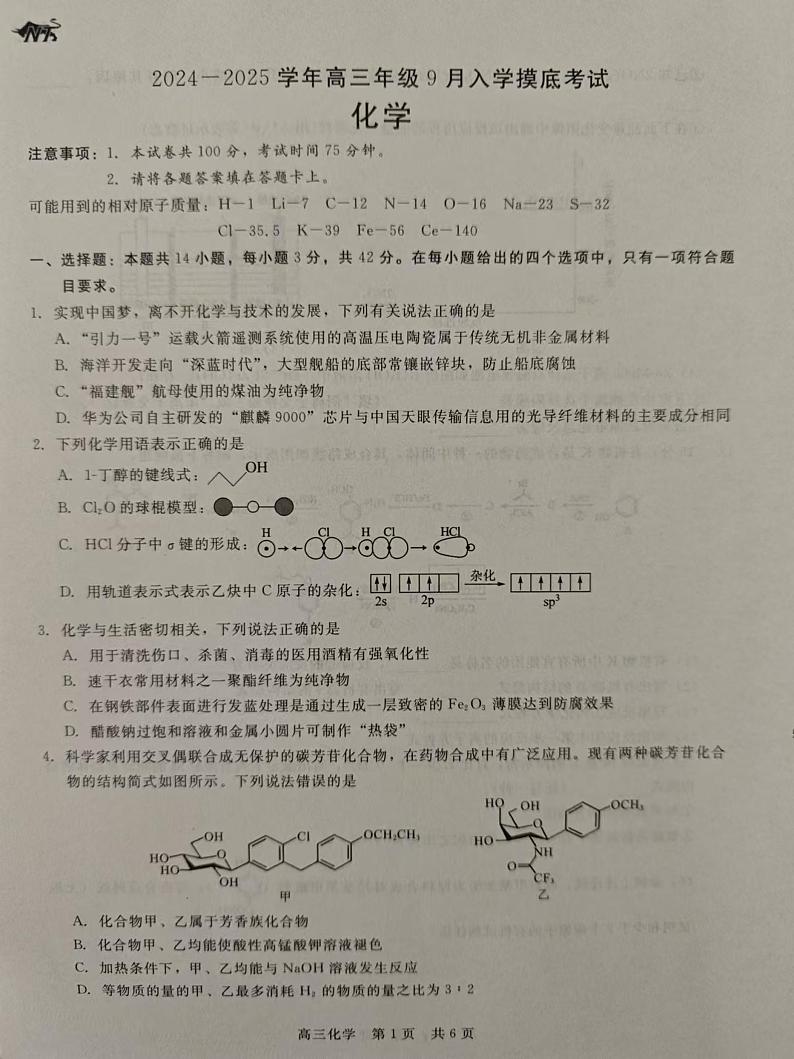 NT
2024－2025 学年高三年级 9 月入学摸底考试
化学
注意事项：1. 本试卷共 100 分，考试时间 75 分钟。
2. 请将各题答案填在答题卡上。
可能用到的相对原子质量：H－1 Li－7 C－12 N－14 O－16 Na－23 S－32
Cl－35.5 K－39 Fe－56 Ce－140
一、选择题：本题共 14 小题，每小题 3 分，共 42 分。在每小题给出的四个选项中，只有一项符合题
目要求。
1. 实现中国梦，离不开化学与技术的发展，下列有关说法正确的是
A. “引力一号”运载火箭遥测系统使用的高温压电陶瓷属于传统无机非金属材料
B. 海洋开发走向“深蓝时代”，大型舰船的底部常镶嵌锌块，防止船底腐蚀
C. “福建舰”航母使用的煤油为纯净物
D. 华为公司自主研发的“麒麟 9000”芯片与中国天眼传输信息用的光导纤维材料的主要成分相同
2. 下列化学用语表示正确的是
A. 1-丁醇的键线式：OH
B. Cl₂O 的球棍模型：
C. HCl 分子中 σ 键的形成：H Cl H Cl HCl
D. 用轨道表示式表示乙炔中 C 原子的杂化：2s 2p 杂化 sp³
3. 化学与生活密切相关，下列说法正确的是
A. 用于清洗伤口、杀菌、消毒的医用酒精有强氧化性
B. 速干衣常用材料之一聚酯纤维为纯净物
C. 在钢铁部件表面进行发蓝处理是通过生成一层致密的 Fe₂O₃ 薄膜达到防腐效果
D. 醋酸钠过饱和溶液和金属小圆片可制作“热袋”
4. 科学家利用交叉偶联合成无保护的碳芳苷化合物，在药物合成中有广泛应用。现有两种碳芳苷化合
物的结构简式如图所示。下列说法错误的是
OH Cl OCH₂CH₃ HO HO O OH
甲
HO OH OCH₃ HO O NH O CF₃
乙
A. 化合物甲、乙属于芳香族化合物
B. 化合物甲、乙均能使酸性高锰酸钾溶液褪色
C. 加热条件下，甲、乙均能与 NaOH 溶液发生反应
D. 等物质的量的甲、乙最多消耗 H₂ 的物质的量之比为 3∶2
高三化学 第 1 页 共 6 页